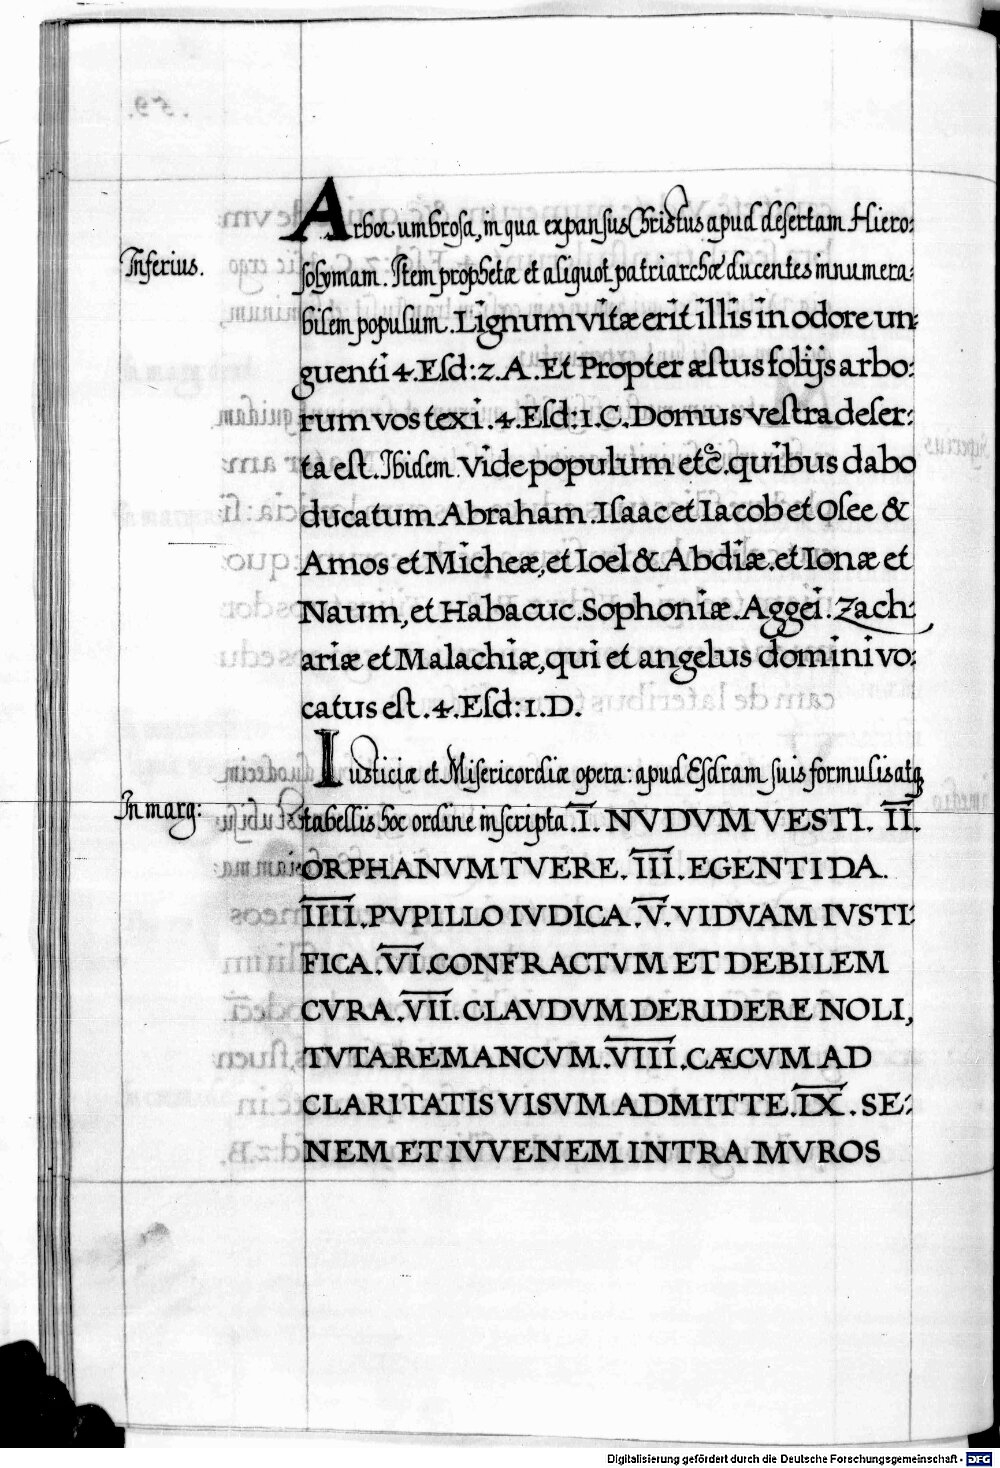 Arbor umbrosa, in qua expansus Christus apud desertam Hiero:
Inferius.
solymam. Item prophetæ et aliquot patriarchæ ducentes innumera:
bilem populum. Lignum vitæ erit illis in odore un:
guenti 4. Esd: 2. A. Et Propter æstus folijs arbo:
rum vos texi. 4. Esd: 1. C. Domus vestra deser:
ta est. Ibidem. Vide populum etc̃. quibus dabo
ducatum Abraham. Isaac et Iacob et Osee &
Amos et Micheæ, et Ioel & Abdiæ. et Ionæ et
Naum, et Habacuc. Sophoniæ. Aggei. Zach:
ariæ et Malachiæ, qui et angelus domini vo:
catus est. 4. Esd: 1. D.
Iusticiæ et Misericordiæ opera: apud Esdram suis formulis atq
In marg:
tabellis hoc ordine inscripta. I. NVDVM VESTI. II.
ORPHANVM TVERE. III. EGENTI DA.
IIII. PVPILLO IVDICA. V. VIDVAM IVSTI:
FICA. VI. CONFRACTVM ET DEBILEM
CVRA. VII. CLAVDVM DERIDERE NOLI,
TVTARE MANCVM. VIII. CÆCVM AD
CLARITATIS VISVM ADMITTE. IX. SE:
NEM ET IVVENEM INTRA MVROS
Digitalisierung gefördert durch die Deutsche Forschungsgemeinschaft - DFG